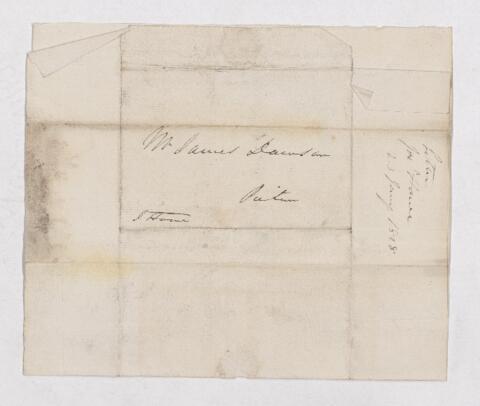 Mr James Dawson
Pictou
J Howe
Letter
Jos Howe
23 Jany 1828